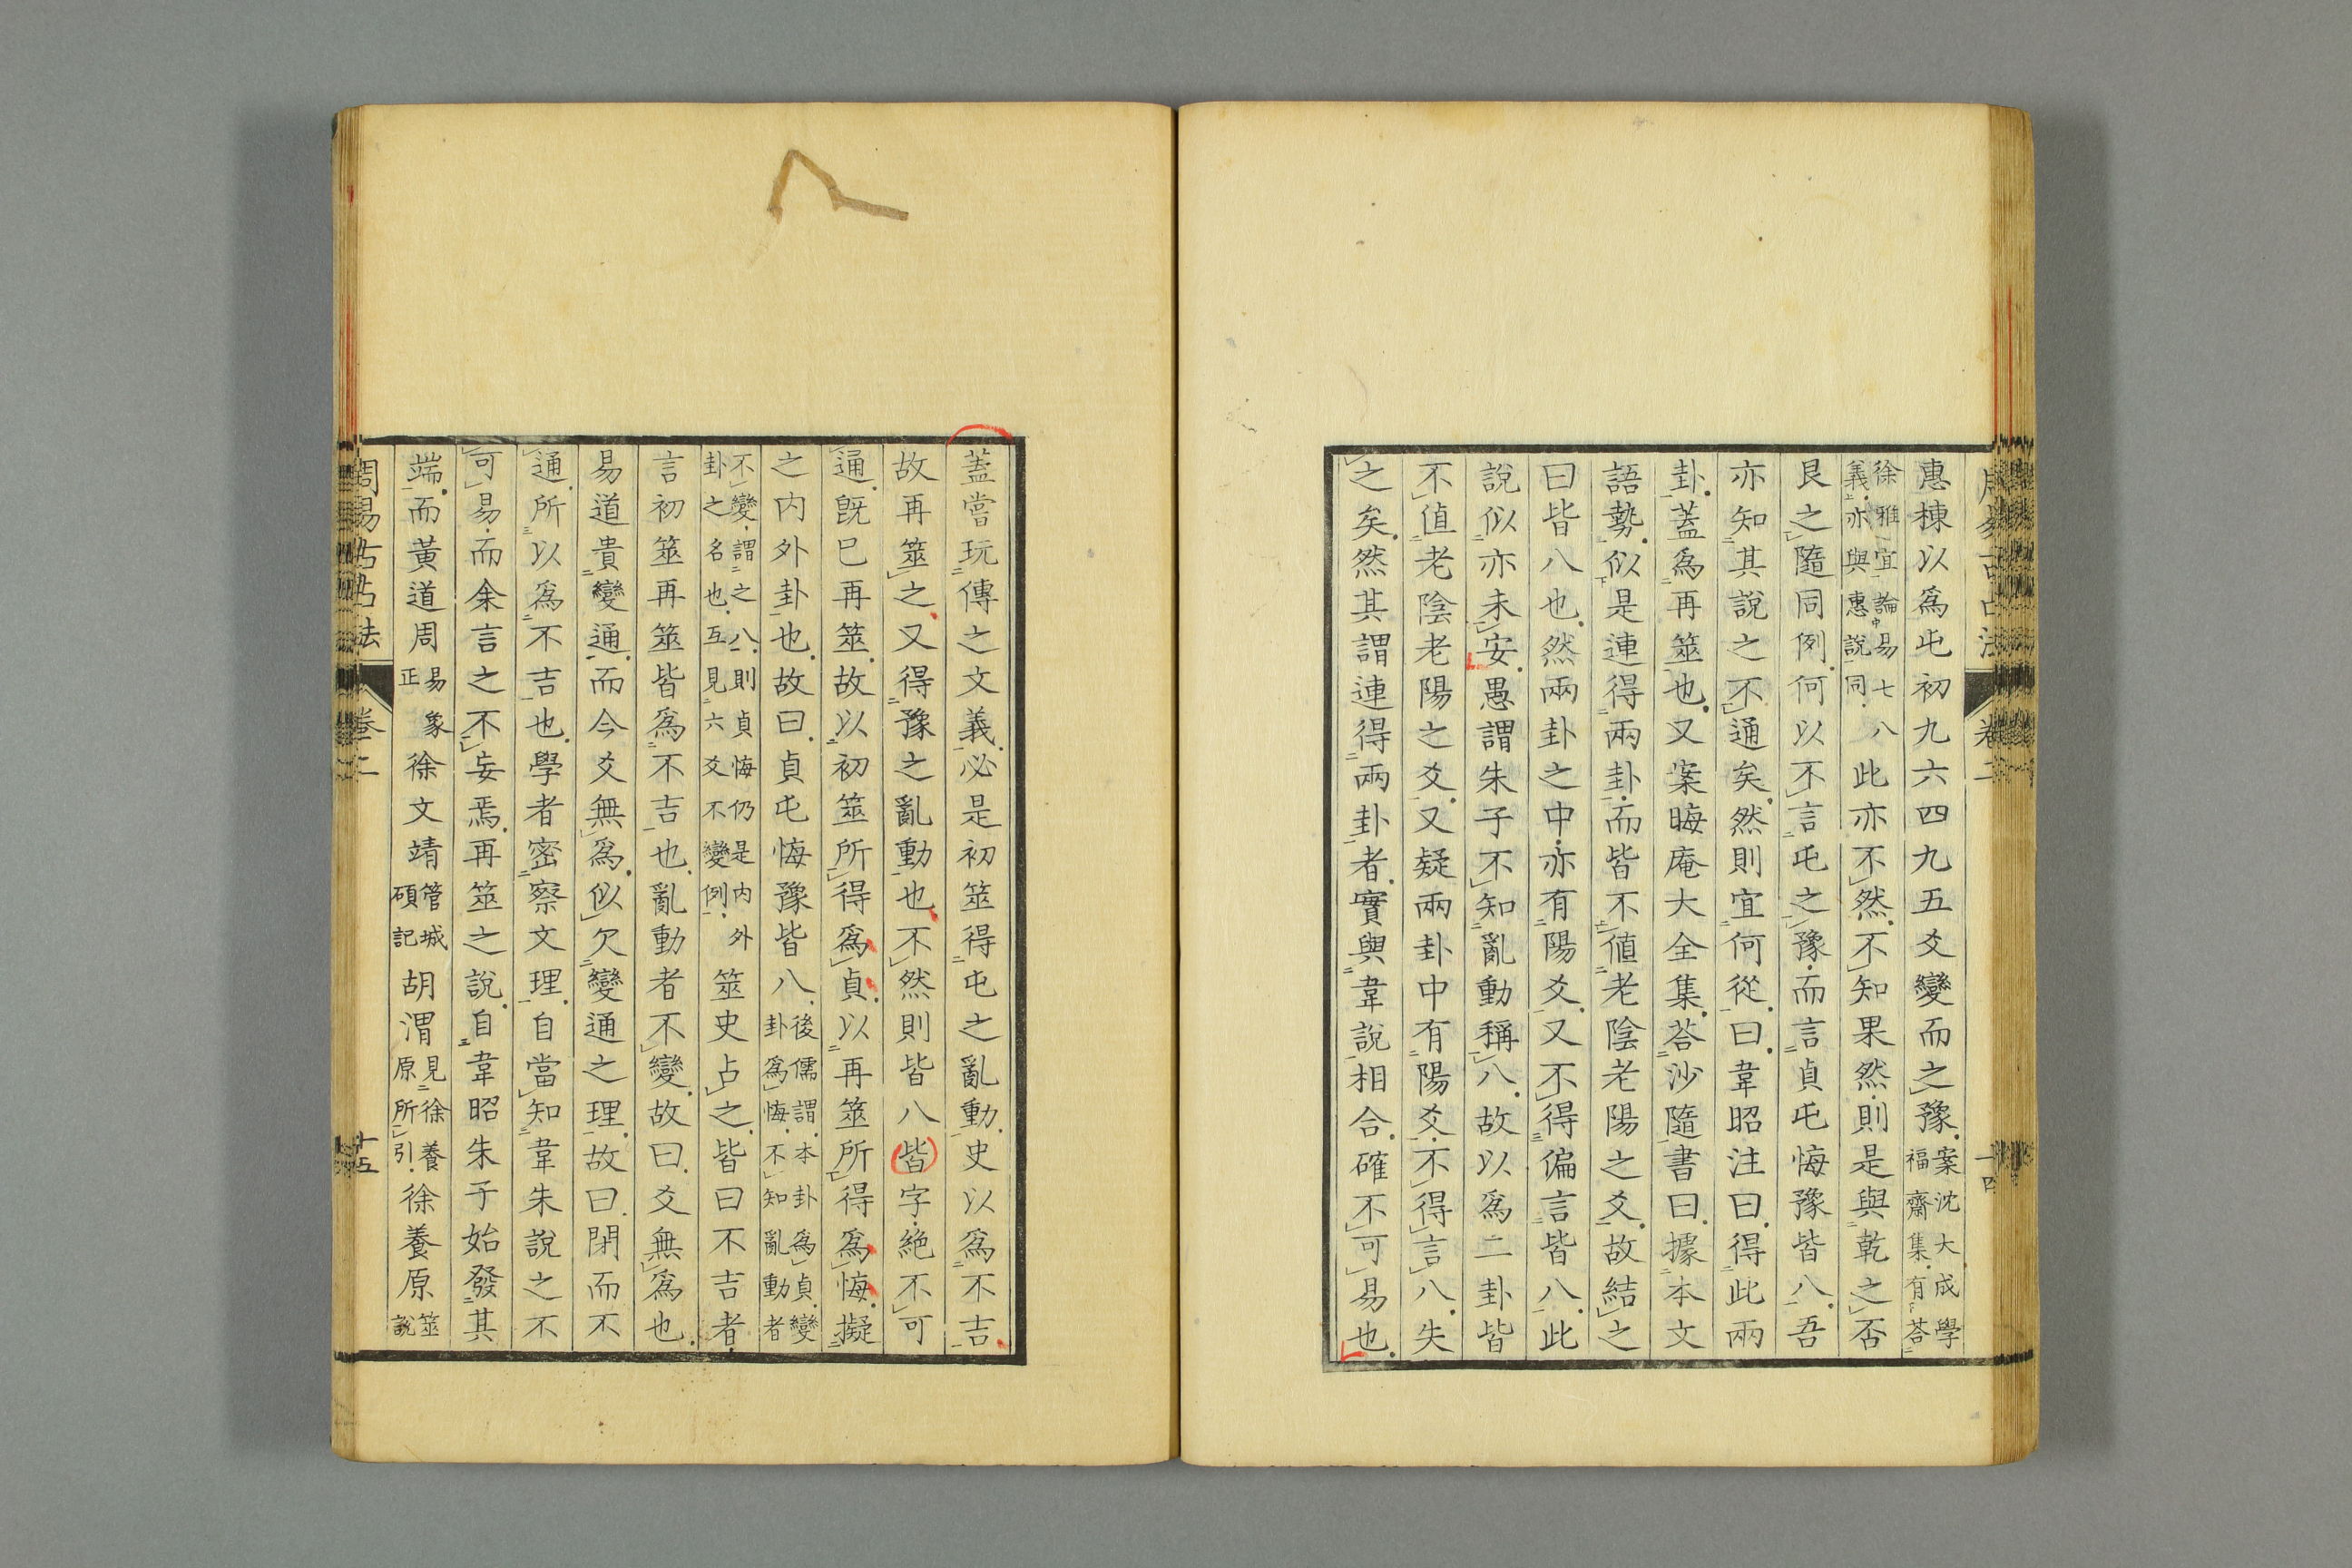 惠棟以爲屯初九六四九五爻變而之豫案沈大成學福齋集有荅
徐雅宜論易七八義亦與惠說同此亦不然不知果然則是與乾之否
艮之隨同例何以不言屯之豫而言貞屯悔豫皆八吾
亦知其說之不通矣然則宜何從曰韋昭注曰得此兩
卦蓋爲再筮也又案晦庵大全集荅沙隨書曰據本文
語勢似是連得兩卦而皆不値老陰老陽之爻故結之
曰皆八也然兩卦之中亦有陽爻又不得偏言皆八此
說似亦未安愚謂朱子不知亂動稱八故以爲二卦皆
不値老陰老陽之爻又疑兩卦中有陽爻不得言八失
之矣然其謂連得兩卦者實與韋說相合確不可易也
卷二
蓋嘗玩傳之文義必是初筮得屯之亂動史以爲不吉
故再筮之又得豫之亂動也不然則皆八皆字絶不可
通旣已再筮故以初筮所得爲貞以再筮所得爲悔擬
之内外卦也故曰貞屯悔豫皆八後儒謂本卦爲貞變卦爲悔不知亂動者
不變謂之八則貞悔仍是内外卦之名也互見六爻不變例筮史占之皆曰不吉者
言初筮再筮皆爲不吉也亂動者不變故曰爻無爲也
易道貴變通而今爻無爲似欠變通之理故曰閉而不
通所以爲不吉也學者密察文理自當知韋朱說之不
可易而余言之不妄焉再筮之說自韋昭朱子始發其
端而黃道周易象正徐文靖管城碩記胡渭見徐養原所引徐養原筮說
周易古占法
卷二
十五